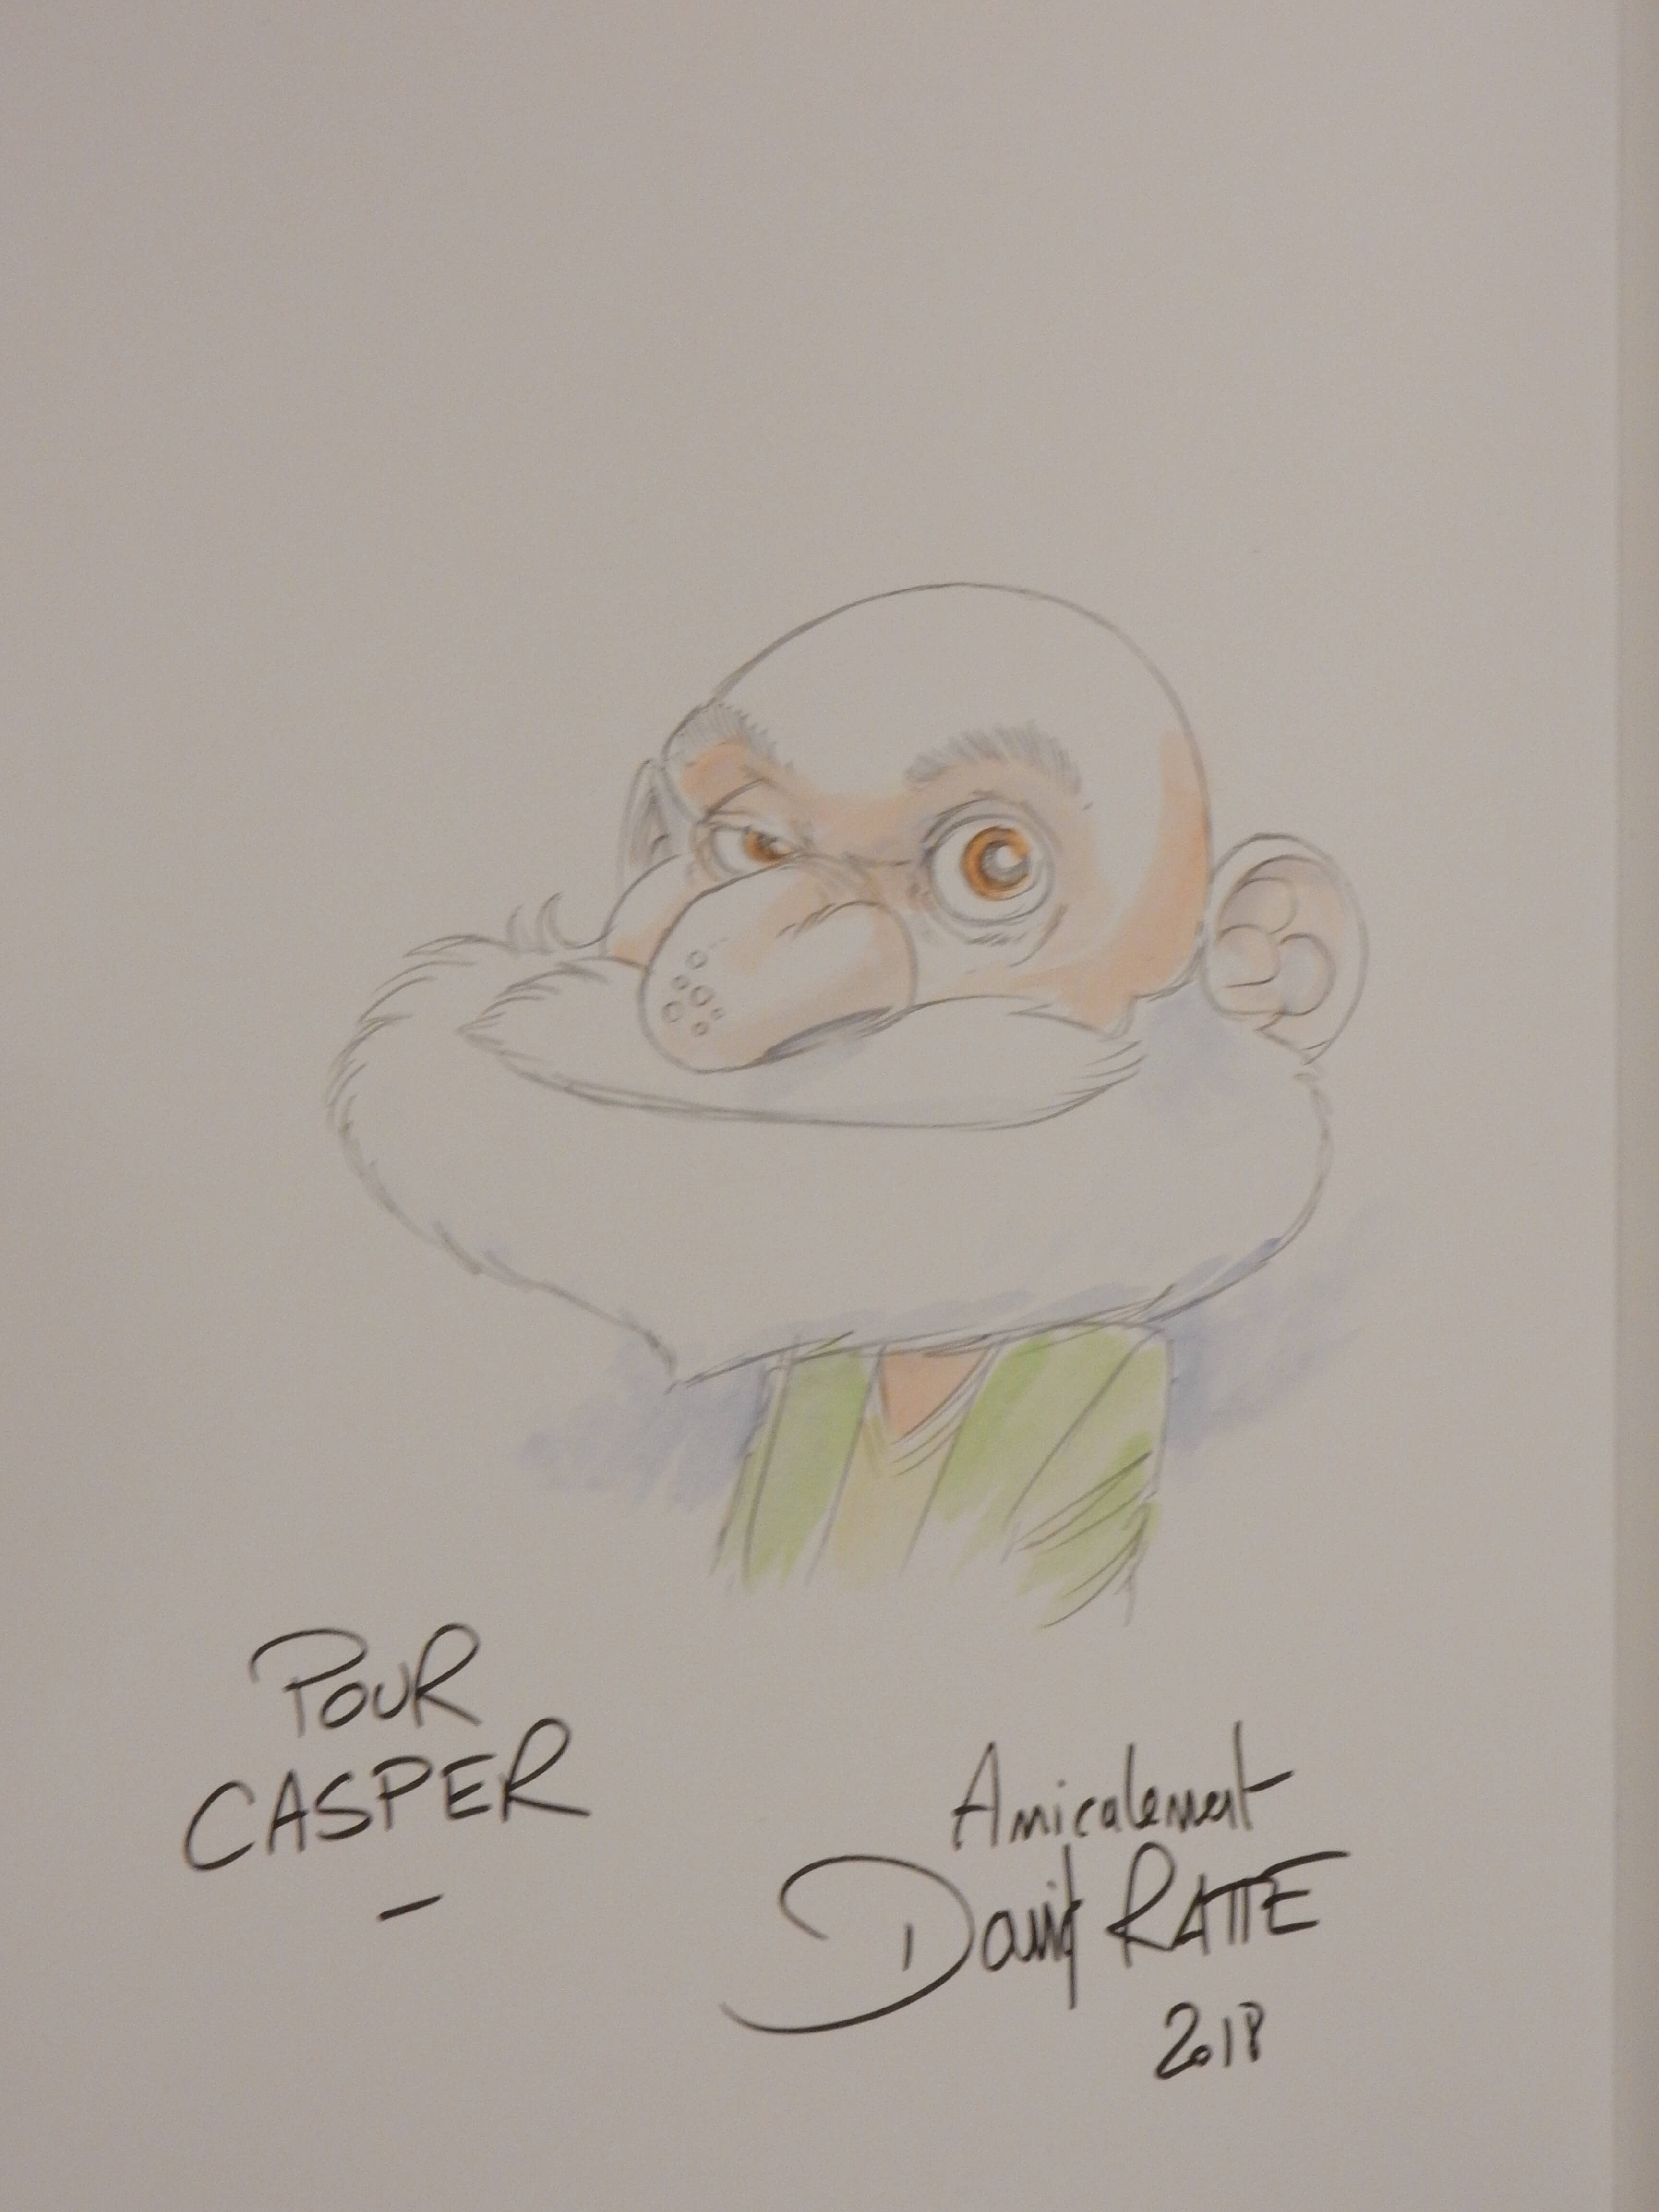 POUR
CASPER
-
Amicalement
David RATTE
2018